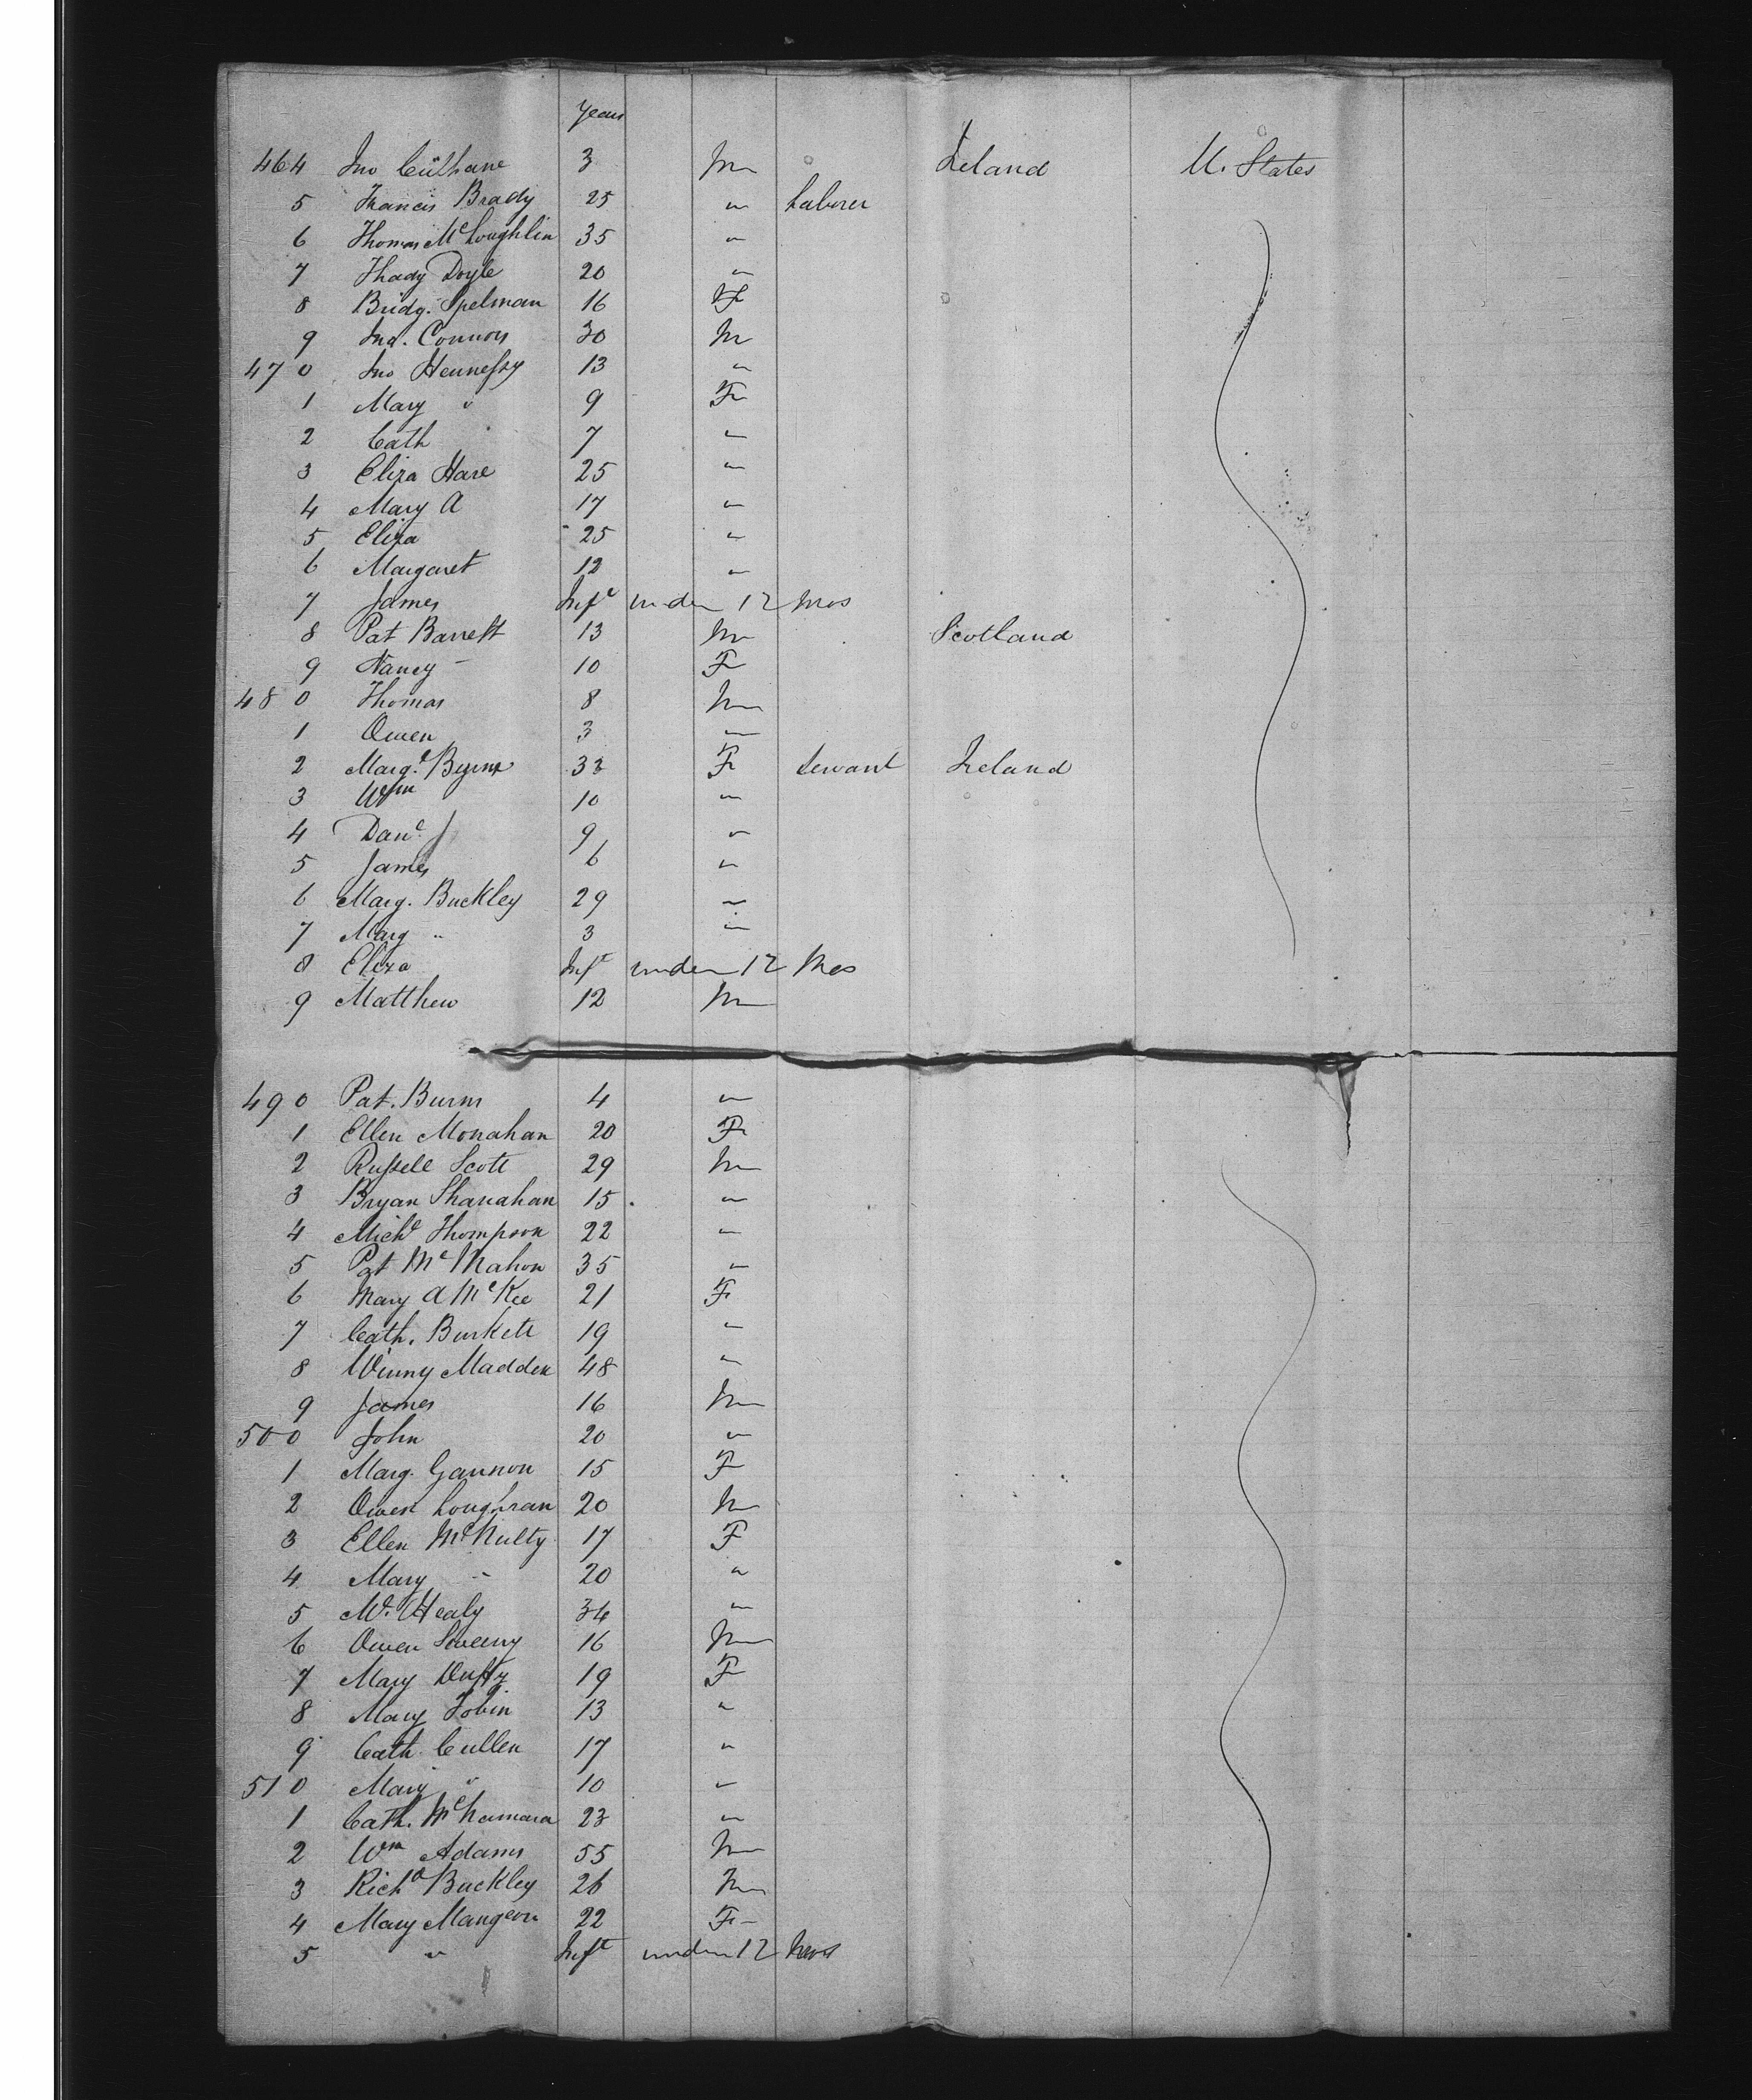 years
464 Jno Culhane 3 M Ireland U. States
5 Francis Brady 25 " Laborer
6 Thomas McLoughlin 35 "
7 Thady Doyle 20 "
8 Bridg. Spelman 16 F
9 Connors 30 M
470 Jno Hennessy 13 "
1 Mary " 9 F
2 Cath 7 "
3 Eliza Hare 25 "
4 Mary A 17 "
5 Eliza 25 "
6 Margaret 12 "
7 James Inft under 12 Mos
8 Pat Barrett 13 M Scotland
9 Nancy - 10 F
480 Thomas 8 M
1 Owen 3 "
2 Margt Byrne 33 F Servant Ireland
3 Wm 10 "
4 Danl J 9 "
5 James 6 "
6 Marg. Buckley 29 "
7 Mary " 3 "
8 Eliza Inft under 12 Mos
9 Matthew 12 M
490 Pat. Burns 4 "
1 Ellen Monahan 20 F
2 Russell Scott 29 M
3 Bryan Shanahan 15 "
4 Michl Thompson 22 "
5 Pat McMahon 35 "
6 Mary A McKee 21 F
7 Cath. Burkett 19 "
8 Winny Madden 48 "
9 James 16 M
500 John 20 "
1 Marg. Gannon 15 F
2 Owen Loughran 20 M
3 Ellen McNulty 17 F
4 Mary " 20 "
5 Healy "
6 Owen Sweeny 16 M
7 Mary Duffy 19 F
8 Mary Tobin 13 "
9 Cath. Cullen 17 "
510 Mary " 10 "
1 Cath. McNamara 23 "
2 Wm Adams 55 M
3 Richd Buckley 26 M
4 Mary Mangeon 22 F
5 " Inft under 12 Mos